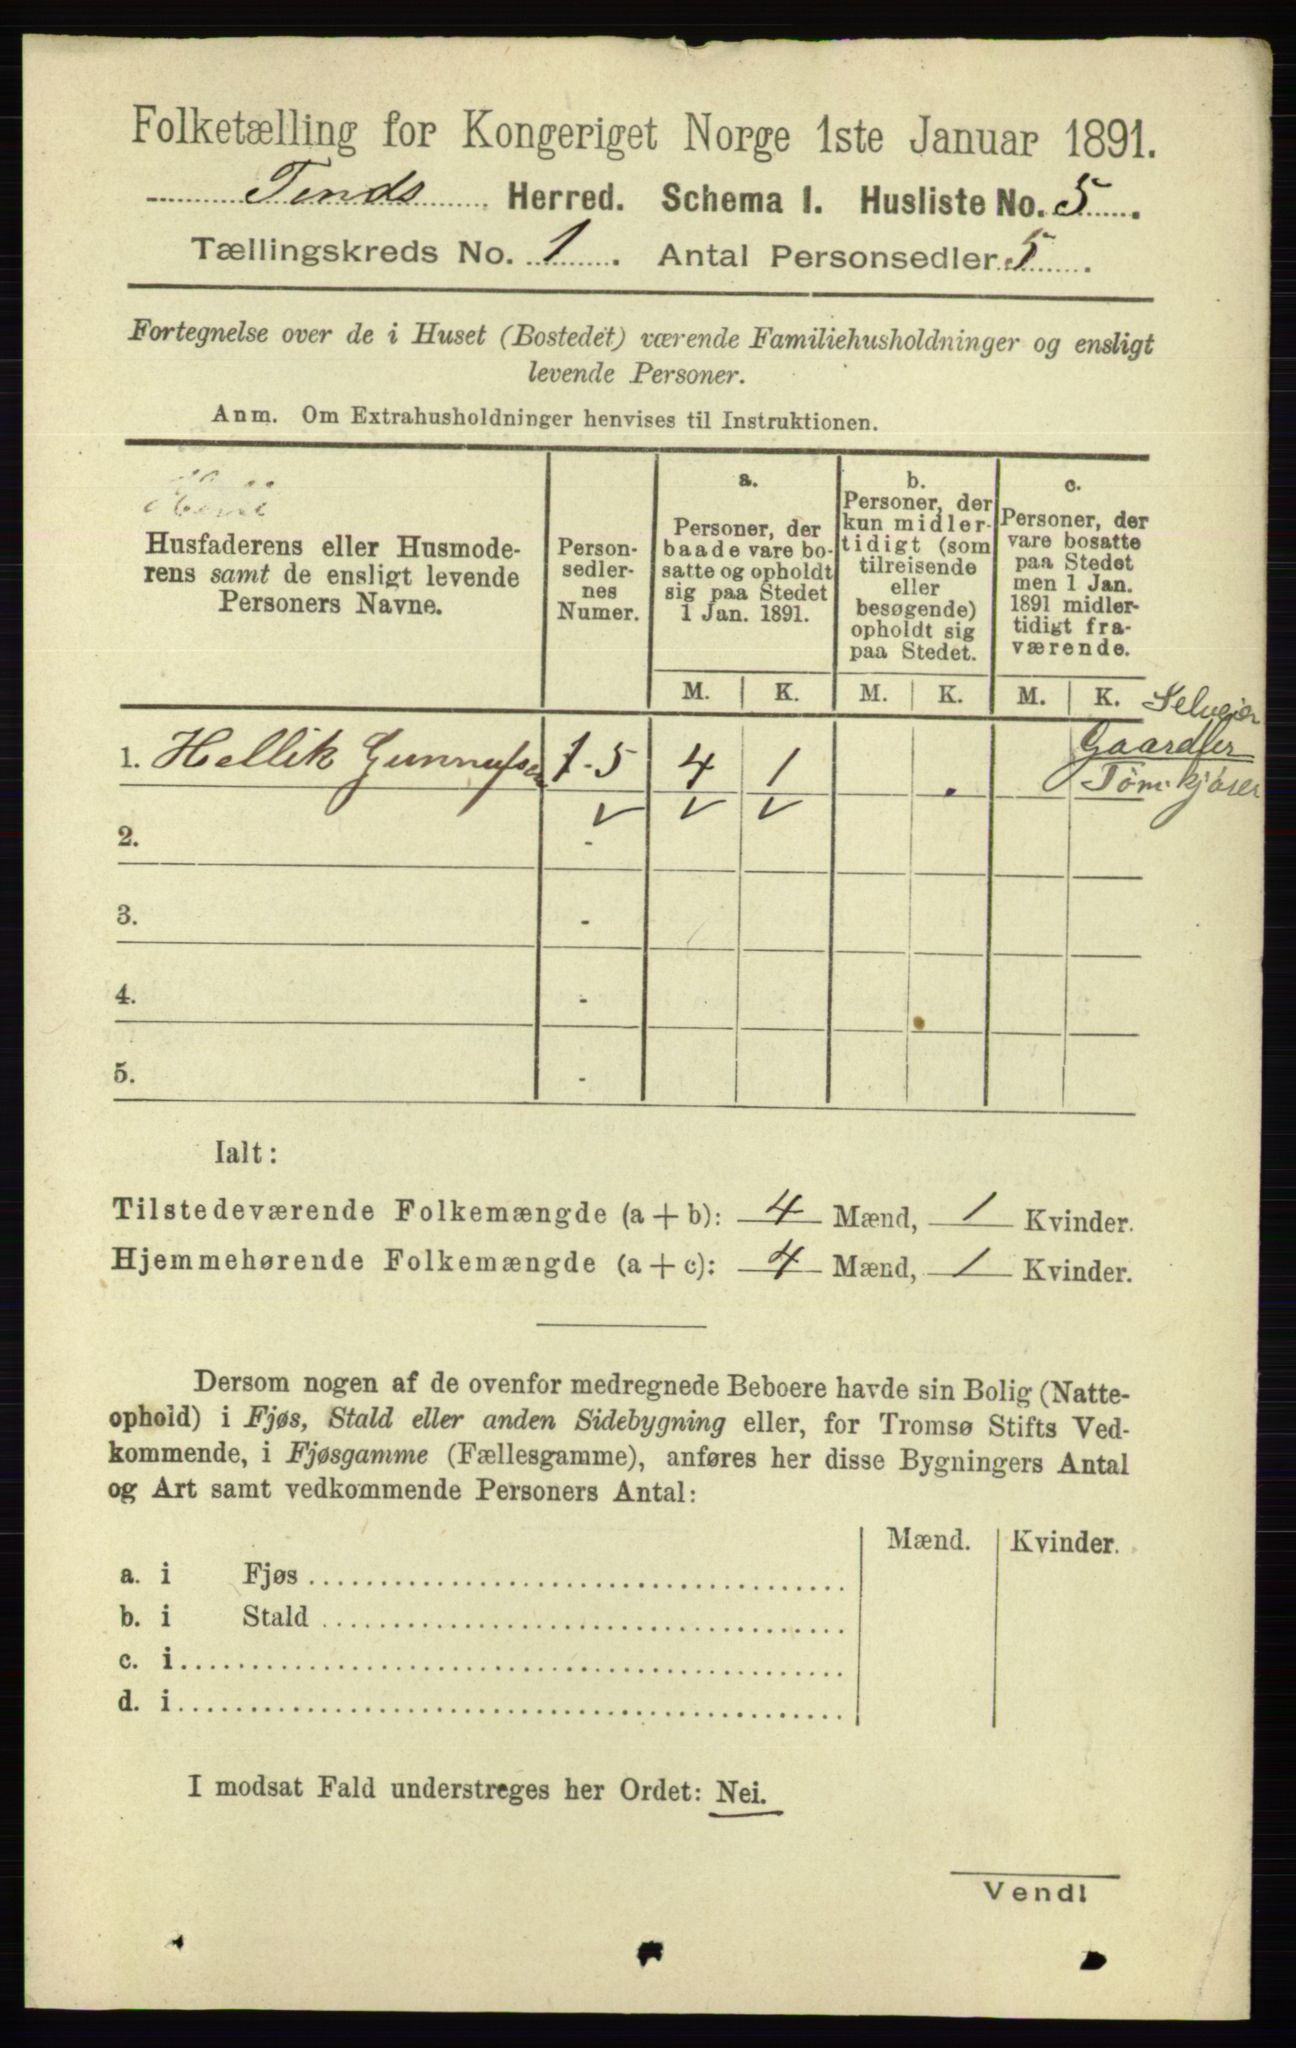 Folketælling for Kongeriget Norge 1ste Januar 1891.
Tinds Herred. Schema 1. Husliste No. 5.
Tællingskreds No. 1. Antal Personsedler 5.
Fortegnelse over de i Huset (Bostedet) værende Familiehusholdninger og ensligt
levende Personer.
Anm. Om Extrahusholdninger henvises til Instruktionen.
Husfaderens eller Husmode-
rens samt de ensligt levende
Personers Navne.
Person-
sedler-
nes
Numer.
a.
Personer, der
baade vare bo-
satte og opholdt
sig paa Stedet
1 Jan. 1891.
b.
Personer, der
kun midler-
tidigt (som
tilreisende
eller
besøgende)
opholdt sig
paa Stedet.
c.
Personer, der
vare bosatte
paa Stedet
men 1 Jan.
1891 midler-
tidigt fra-
værende.
M. K. M. K. M. K. Selveier
Gaardbr
1. Hellik Gunnufsen 1-5 4 1 Tømkjører
2. -
3. -
4. -
5. -
Ialt:
Tilstedeværende Folkemængde (a + b): 4 Mænd, 1 Kvinder.
Hjemmehørende Folkemængde (a + c): 4 Mænd, 1 Kvinder.
Dersom nogen af de ovenfor medregnede Beboere havde sin Bolig (Natte-
ophold) i Fjøs, Stald eller anden Sidebygning eller, for Tromsø Stifts Ved-
kommende, i Fjøsgamme (Fællesgamme), anføres her disse Bygningers Antal
og Art samt vedkommende Personers Antal:
Mænd. Kvinder.
a. i Fjøs
b. i Stald
c. i
d. i
I modsat Fald understreges her Ordet: Nei.
Vend!